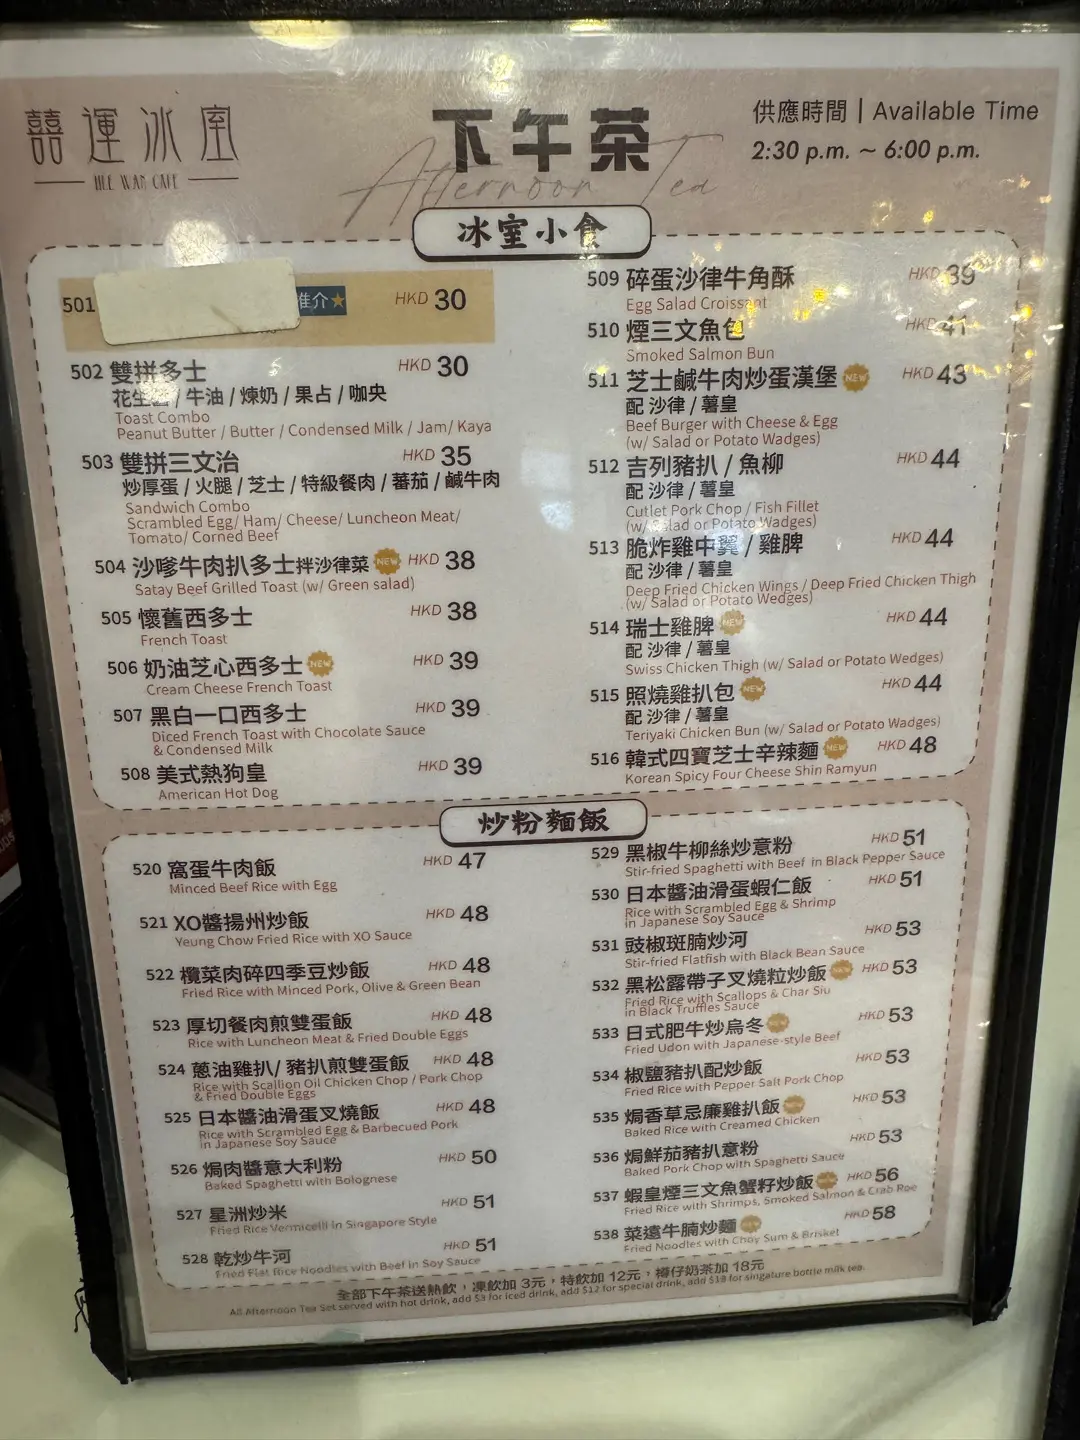 囍運冰室
HEE WAN CAFE
下午茶
Afternoon Tea
供應時間 | Available Time
2:30 p.m. ~ 6:00 p.m.
冰室小食
501 推介★ HKD 30
502 雙拼多士 HKD 30
花生醬 / 牛油 / 煉奶 / 果占 / 咖央
Toast Combo
Peanut Butter / Butter / Condensed Milk / Jam/ Kaya
503 雙拼三文治 HKD 35
炒厚蛋 / 火腿 / 芝士 / 特級餐肉 / 蕃茄 / 鹹牛肉
Sandwich Combo
Scrambled Egg/ Ham/ Cheese/ Luncheon Meat/
Tomato/ Corned Beef
504 沙嗲牛肉扒多士拌沙律菜 NEW HKD 38
Satay Beef Grilled Toast (w/ Green salad)
505 懷舊西多士 HKD 38
French Toast
506 奶油芝心西多士 NEW HKD 39
Cream Cheese French Toast
507 黑白一口西多士 HKD 39
Diced French Toast with Chocolate Sauce
& Condensed Milk
508 美式熱狗皇 HKD 39
American Hot Dog
509 碎蛋沙律牛角酥 HKD 39
Egg Salad Croissant
510 煙三文魚包 HKD 41
Smoked Salmon Bun
511 芝士鹹牛肉炒蛋漢堡 NEW HKD 43
配 沙律 / 薯皇
Beef Burger with Cheese & Egg
(w/ Salad or Potato Wadges)
512 吉列豬扒 / 魚柳 HKD 44
配 沙律 / 薯皇
Cutlet Pork Chop / Fish Fillet
(w/ Salad or Potato Wadges)
513 脆炸雞中翼 / 雞脾 HKD 44
配 沙律 / 薯皇
Deep Fried Chicken Wings / Deep Fried Chicken Thigh
(w/ Salad or Potato Wedges)
514 瑞士雞脾 NEW HKD 44
配 沙律 / 薯皇
Swiss Chicken Thigh (w/ Salad or Potato Wedges)
515 照燒雞扒包 NEW HKD 44
配 沙律 / 薯皇
Teriyaki Chicken Bun (w/ Salad or Potato Wadges)
516 韓式四寶芝士辛辣麵 NEW HKD 48
Korean Spicy Four Cheese Shin Ramyun
炒粉麵飯
520 窩蛋牛肉飯 HKD 47
Minced Beef Rice with Egg
521 XO醬揚州炒飯 HKD 48
Yeung Chow Fried Rice with XO Sauce
522 欖菜肉碎四季豆炒飯 HKD 48
Fried Rice with Minced Pork, Olive & Green Bean
523 厚切餐肉煎雙蛋飯 HKD 48
Rice with Luncheon Meat & Fried Double Eggs
524 蔥油雞扒/ 豬扒煎雙蛋飯 HKD 48
Rice with Scallion Oil Chicken Chop / Pork Chop
& Fried Double Eggs
525 日本醬油滑蛋叉燒飯 HKD 48
Rice with Scrambled Egg & Barbecued Pork
in Japanese Soy Sauce
526 焗肉醬意大利粉 HKD 50
Baked Spaghetti with Bolognese
527 星洲炒米 HKD 51
Fried Rice Vermicelli in Singapore Style
528 乾炒牛河 HKD 51
Fried Flat Rice Noodles with Beef in Soy Sauce
529 黑椒牛柳絲炒意粉 HKD 51
Stir-fried Spaghetti with Beef in Black Pepper Sauce
530 日本醬油滑蛋蝦仁飯 HKD 51
Rice with Scrambled Egg & Shrimp
in Japanese Soy Sauce
531 豉椒斑腩炒河 HKD 53
Stir-fried Flatfish with Black Bean Sauce
532 黑松露帶子叉燒粒炒飯 NEW HKD 53
Fried Rice with Scallops & Char Siu
in Black Truffles Sauce
533 日式肥牛炒烏冬 NEW HKD 53
Fried Udon with Japanese-style Beef
534 椒鹽豬扒配炒飯 HKD 53
Fried Rice with Pepper Salt Pork Chop
535 焗香草忌廉雞扒飯 NEW HKD 53
Baked Rice with Creamed Chicken
536 焗鮮茄豬扒意粉 HKD 53
Baked Pork Chop with Spaghetti Sauce
537 蝦皇煙三文魚蟹籽炒飯 NEW HKD 56
Fried Rice with Shrimps, Smoked Salmon & Crab Roe
538 菜遠牛腩炒麵 NEW HKD 58
Fried Noodles with Choy Sum & Brisket
全部下午茶送熱飲，凍飲加 3元，特飲加 12元，樽仔奶茶加 18元
All Afternoon Tea Set served with hot drink, add $3 for iced drink, add $12 for special drink, add $18 for singature bottle milk tea.